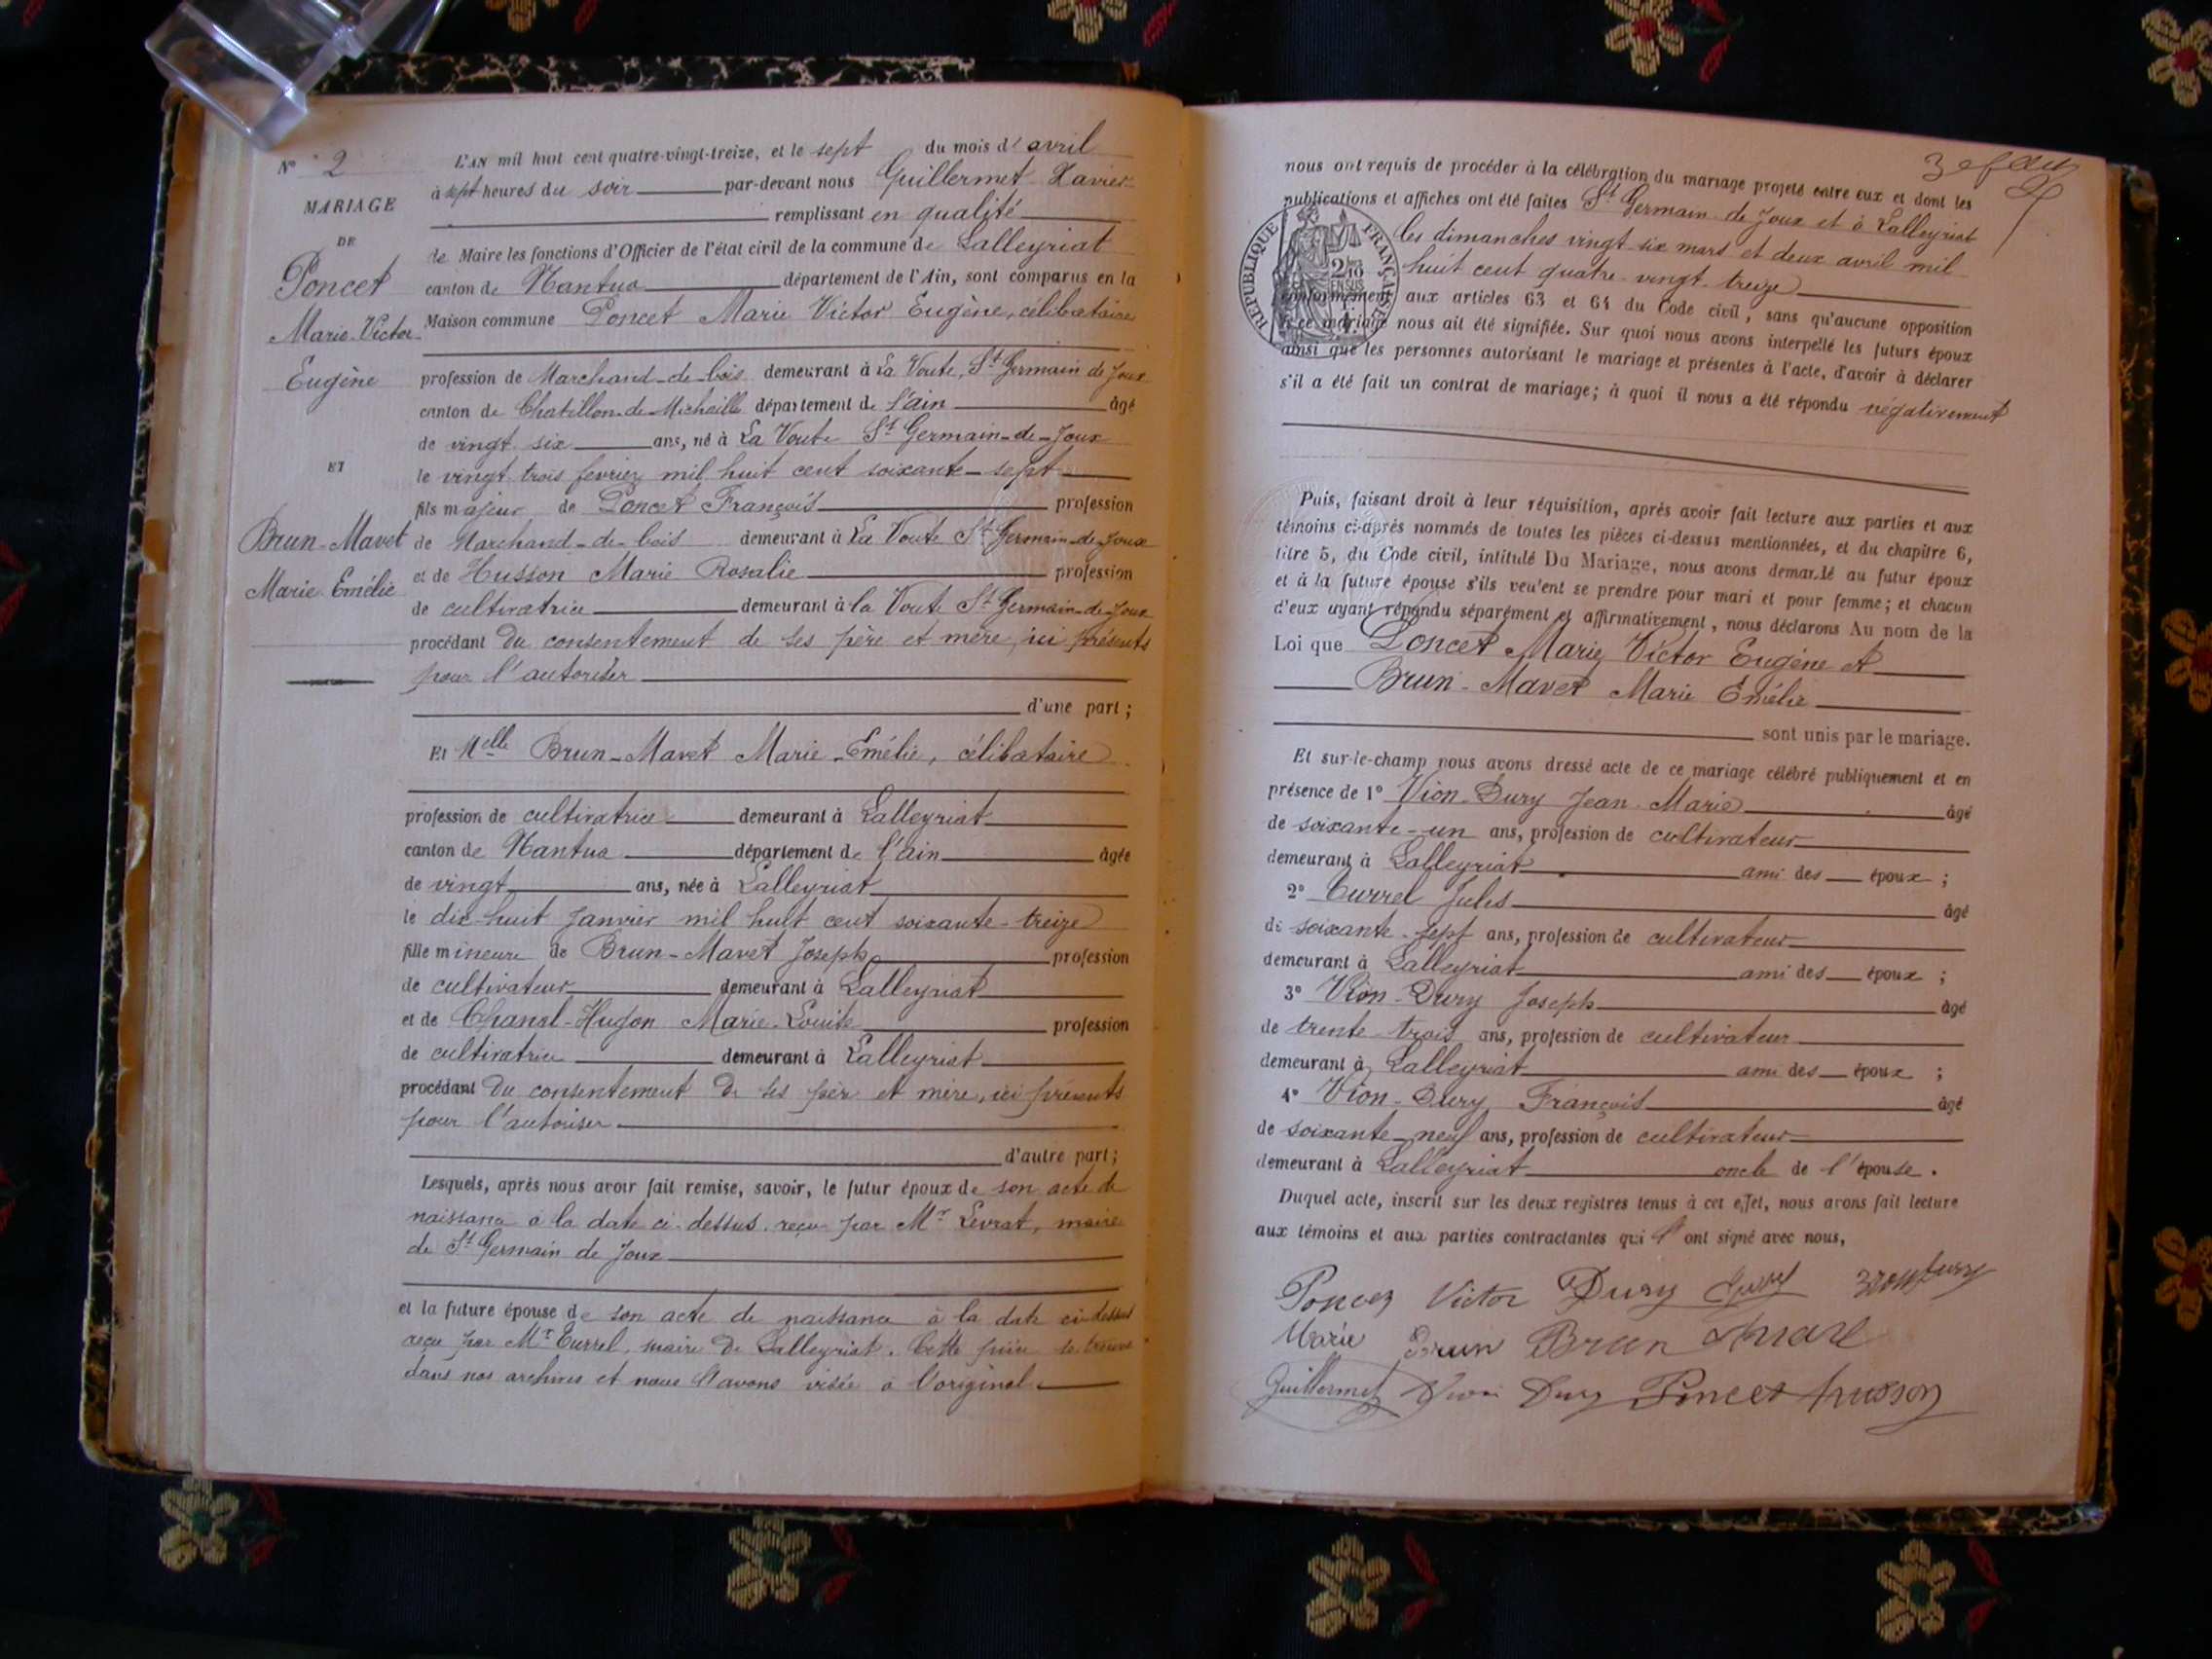 N° 2
MARIAGE
DE
Poncet
Marie-Victor
Eugène
ET
Brun-Mavet
Marie Emélie
L'AN mil huit cent quatre-vingt-treize, et le sept du mois d'avril
à sept heures du soir par-devant nous Guillermet Xavier
remplissant en qualité
de Maire les fonctions d'Officier de l'état civil de la commune de Lalleyriat
canton de Nantua département de l'Ain, sont comparus en la
Maison commune Poncet Marie Victor Eugène, célibataire
profession de Marchand-de-bois demeurant à La Voute, St Germain de Joux
canton de Chatillon-de-Michaille département de l'ain âgé
de vingt six ans, né à La Voute St Germain-de-Joux
le vingt trois fevrier mil huit cent soixante-sept
fils majeur de Poncet François profession
de Marchand-de-bois demeurant à La Voute St Germain-de-Joux
et de Husson Marie Rosalie profession
de cultivatrice demeurant à la Voute St Germain-de-Joux
procédant du consentement de ses père et mère, ici présents
pour l'autoriser
d'une part;
Et Melle Brun-Mavet Marie-Emélie, célibataire
profession de cultivatrice demeurant à Lalleyriat
canton de Nantua département de l'ain âgée
de vingt ans, née à Lalleyriat
le dix-huit Janvier mil huit cent soixante-treize
fille mineure de Brun-Mavet Joseph profession
de cultivateur demeurant à Lalleyriat
et de Chanal-Hugon Marie-Louise profession
de cultivatrice demeurant à Lalleyriat
procédant du consentement de ses père et mère, ici présents
pour l'autoriser
d'autre part;
Lesquels, après nous avoir fait remise, savoir, le futur époux de son acte de
naissance à la date ci-dessus reçu par Mr Levrat, maire
de St Germain de Joux
et la future épouse de son acte de naissance à la date ci-dessus
reçu par Mr Currel, maire de Lalleyriat. Cette pièce se trouve
dans nos archives et nous l'avons visée à l'original
nous ont requis de procéder à la célébration du mariage projeté entre eux et dont les
publications et affiches ont été faites St Germain de Joux et à Lalleyriat
les dimanches vingt six mars et deux avril mil
huit cent quatre-vingt-treize
RÉPUBLIQUE FRANÇAISE
conformément aux articles 63 et 64 du Code civil, sans qu'aucune opposition
à ce mariage nous ait été signifiée. Sur quoi nous avons interpellé les futurs époux
ainsi que les personnes autorisant le mariage et présentes à l'acte, d'avoir à déclarer
s'il a été fait un contrat de mariage; à quoi il nous a été répondu négativement
Puis, faisant droit à leur réquisition, après avoir fait lecture aux parties et aux
témoins ci-après nommés de toutes les pièces ci-dessus mentionnées, et du chapitre 6,
titre 5, du Code civil, intitulé Du Mariage, nous avons demandé au futur époux
et à la future épouse s'ils veulent se prendre pour mari et pour femme; et chacun
d'eux ayant répondu séparément et affirmativement, nous déclarons Au nom de la
Loi que Poncet Marie Victor Eugène et
Brun-Mavet Marie Emélie
sont unis par le mariage.
Et sur-le-champ nous avons dressé acte de ce mariage célébré publiquement et en
présence de 1° Vion-Dury Jean-Marie âgé
de soixante-un ans, profession de cultivateur
demeurant à Lalleyriat ami des époux ;
2° Currel Jules âgé
de soixante-sept ans, profession de cultivateur
demeurant à Lalleyriat ami des époux ;
3° Vion-Dury Joseph âgé
de trente-trois ans, profession de cultivateur
demeurant à Lalleyriat ami des époux ;
4° Vion-Dury François âgé
de soixante-neuf ans, profession de cultivateur
demeurant à Lalleyriat oncle de l'épouse .
Duquel acte, inscrit sur les deux registres tenus à cet effet, nous avons fait lecture
aux témoins et aux parties contractantes qui l'ont signé avec nous,
Poncet Victor Dury
Marie Brun Brun
Guillermet Vion Dury Poncet husson